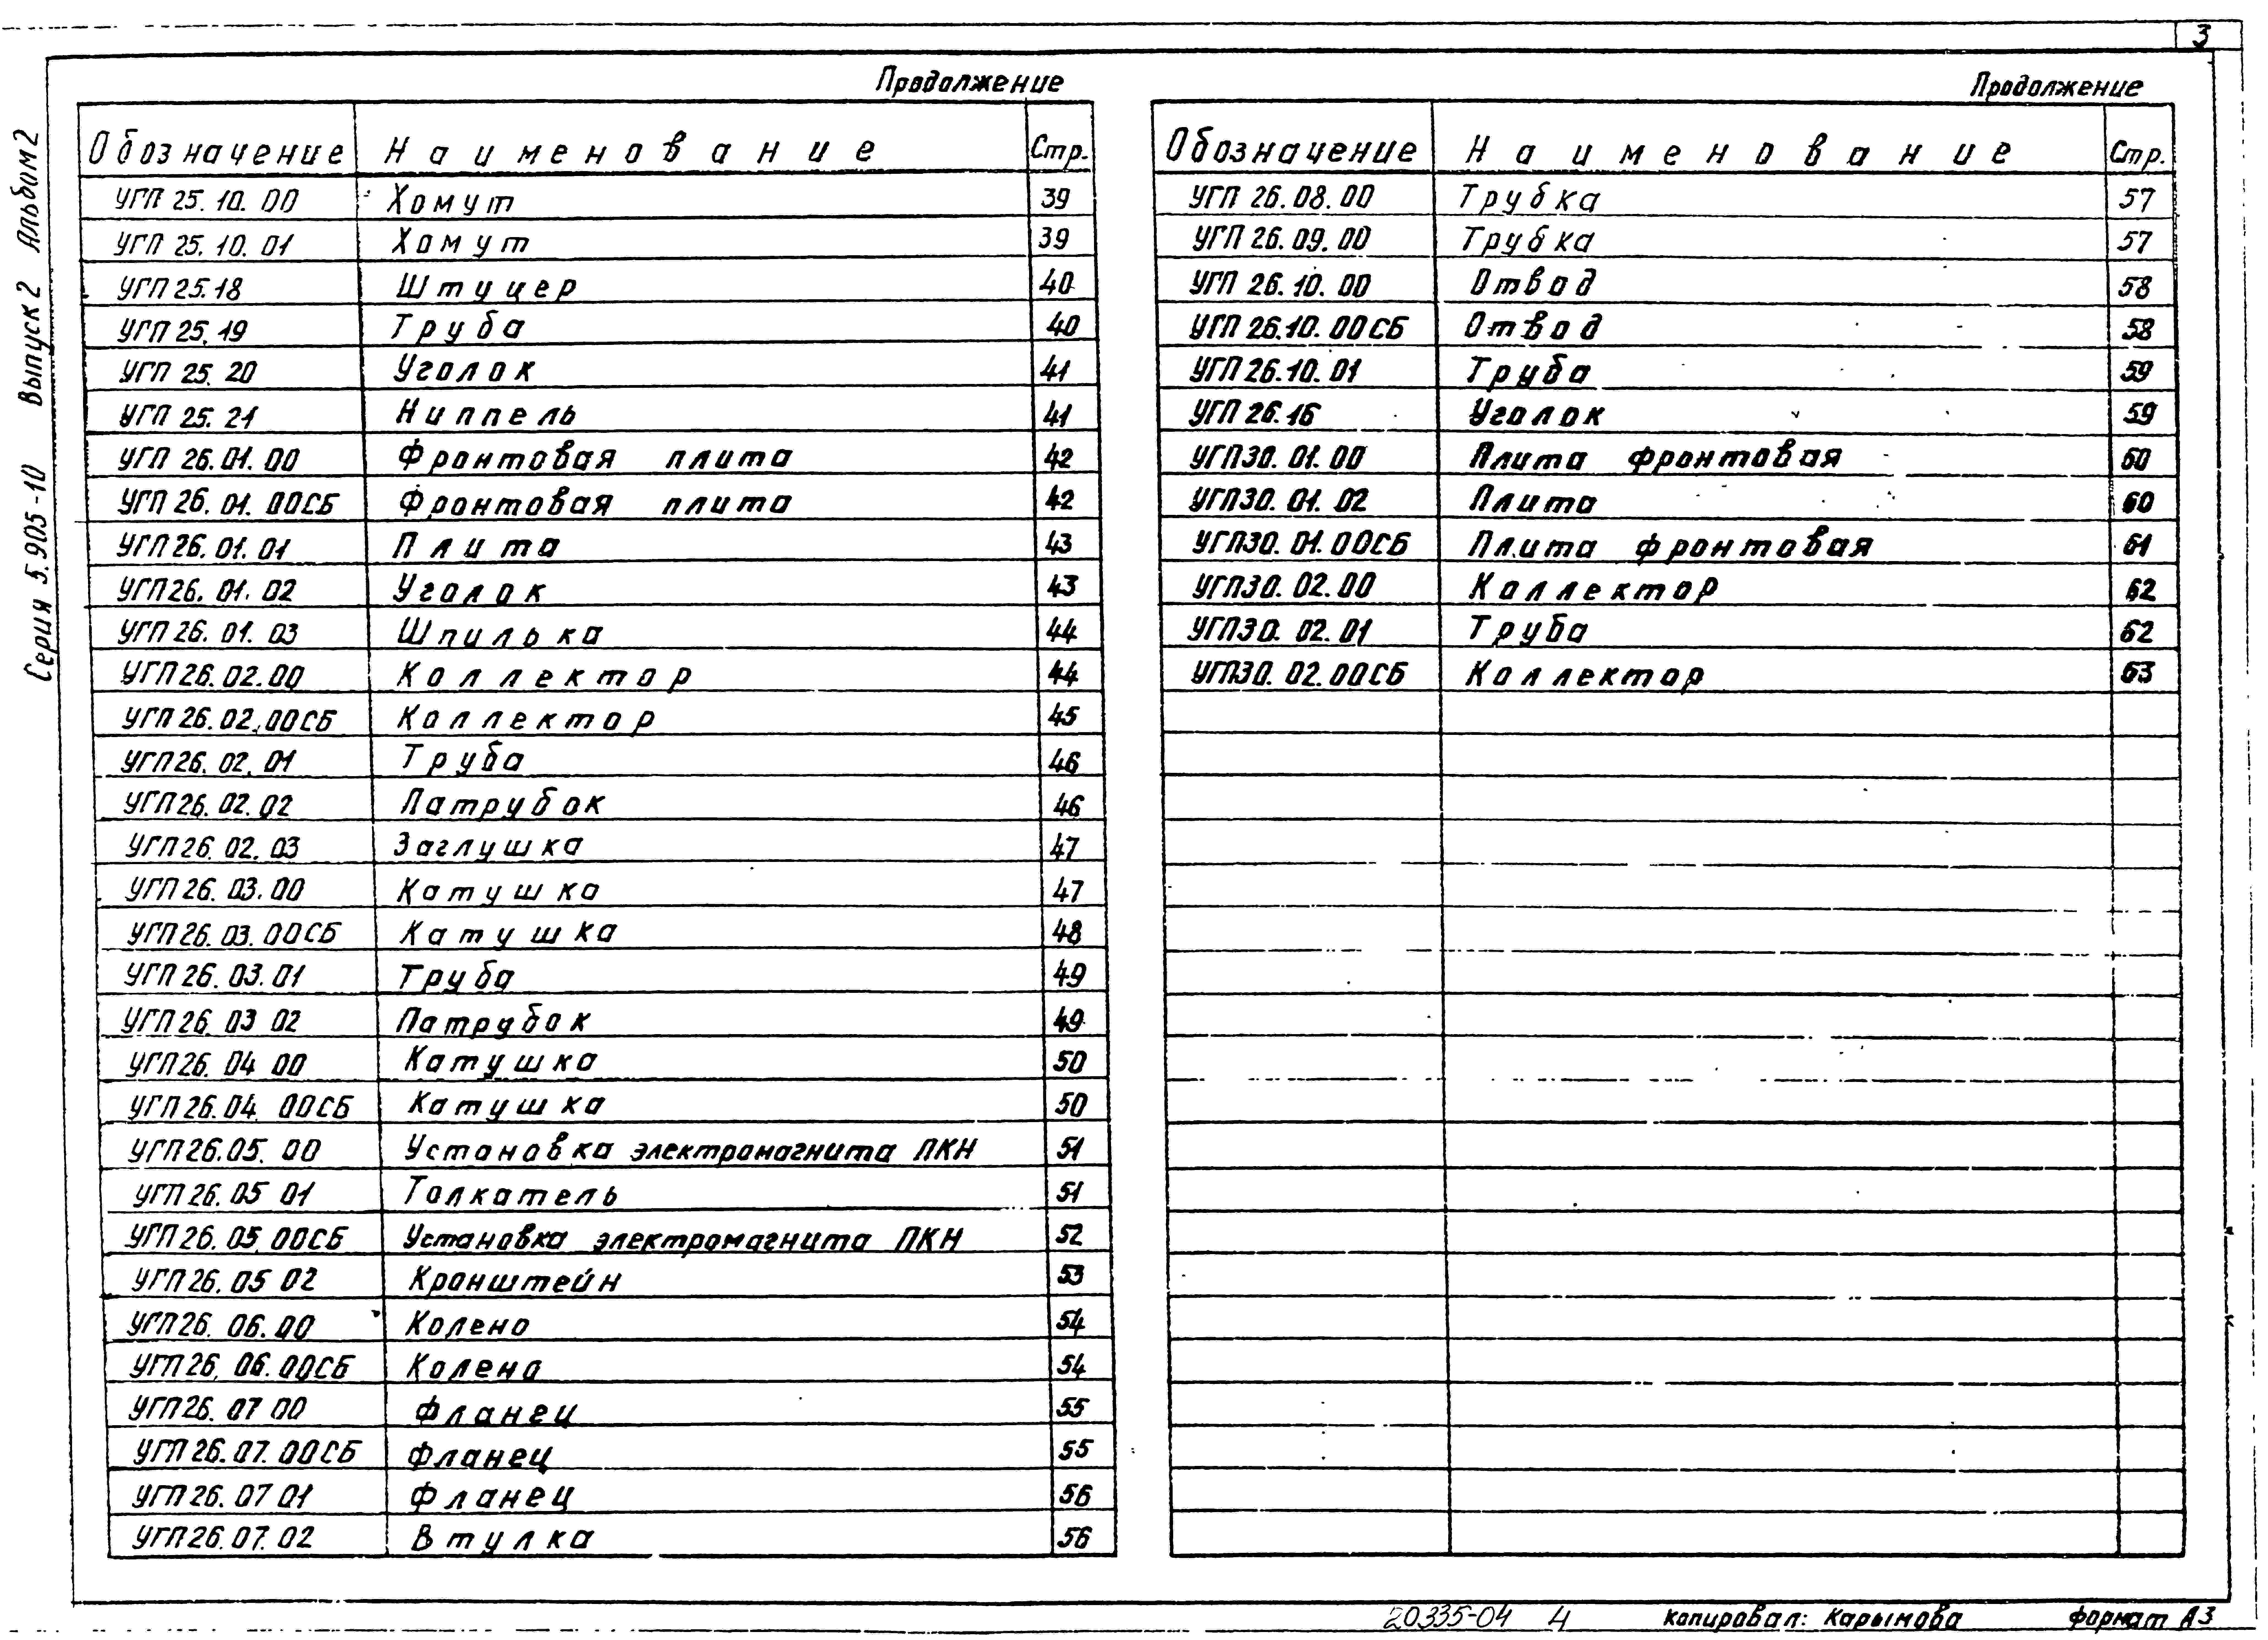 3
Серия 5.905-10 Выпуск 2 Альбом 2
Продолжение
Обозначение Наименование Стр.
УГП 25.10.00 Хомут 39
УГП 25.10.01 Хомут 39
УГП 25.18 Штуцер 40
УГП 25.19 Труба 40
УГП 25.20 Уголок 41
УГП 25.21 Ниппель 41
УГП 26.01.00 Фронтовая плита 42
УГП 26.01.00СБ Фронтовая плита 42
УГП 26.01.01 Плита 43
УГП 26.01.02 Уголок 43
УГП 26.01.03 Шпилька 44
УГП 26.02.00 Коллектор 44
УГП 26.02.00СБ Коллектор 45
УГП 26.02.01 Труба 46
УГП 26.02.02 Патрубок 46
УГП 26.02.03 Заглушка 47
УГП 26.03.00 Катушка 47
УГП 26.03.00СБ Катушка 48
УГП 26.03.01 Труба 49
УГП 26 03 02 Патрубок 49
УГП 26. 04 00 Катушка 50
УГП 26.04 00СБ Катушка 50
УГП 26.05.00 Установка электромагнита ПКН 51
УГП 26.05 01 Толкатель 51
УГП 26.05.00СБ Установка электромагнита ПКН 52
УГП 26.05 02 Кронштейн 53
УГП 26.06.00 Колено 54
УГП 26.06.00СБ Колено 54
УГП 26.07 00 Фланец 55
УГП 26.07.00СБ Фланец 55
УГП 26.07 01 Фланец 56
УГП 26.07.02 Втулка 56
Продолжение
Обозначение Наименование Стр.
УГП 26.08.00 Трубка 57
УГП 26.09.00 Трубка 57
УГП 26.10.00 Отвод 58
УГП 26.10.00СБ Отвод 58
УГП 26.10.01 Труба 59
УГП 26.16 Уголок 59
УГП 30.01.00 Плита фронтовая 60
УГП 30.01.02 Плита 60
УГП 30.01.00СБ Плита фронтовая 61
УГП 30.02.00 Коллектор 62
УГП 30.02.01 Труба 62
УГП 30.02.00СБ Коллектор 63
20335-04 4 Копировал: Карымова формат А3